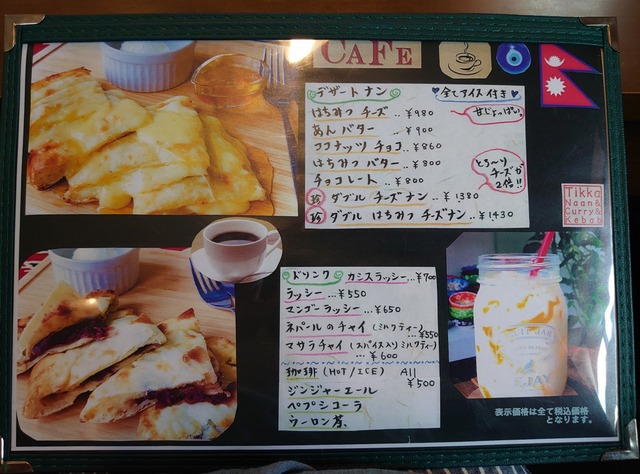 CaFe
デザートナン
♥全てアイス付き♥
はちみつ チーズ‥¥980
甘じょっぱい
あん バター‥¥900
ココナッツ チョコ‥¥860
はちみつ バター‥¥800
チョコレート‥¥800
とろ〜り
チーズが
2倍!!
ダブル チーズナン…¥1380
ダブル はちみつ チーズナン‥¥1430
Tikka
Naan&
Curry&
Kebab
ドリンク
カシスラッシー…¥700
ラッシー…¥550
マンゴーラッシー…¥650
ネパールのチャイ(ミルクティー)
…¥550
マサラチャイ(スパイス入りミルクティー)
…¥600
珈琲(HOT/ICE) All
¥500
ジンジャーエール
ペプシコーラ
ウーロン茶
表示価格は全て税込価格
となります。